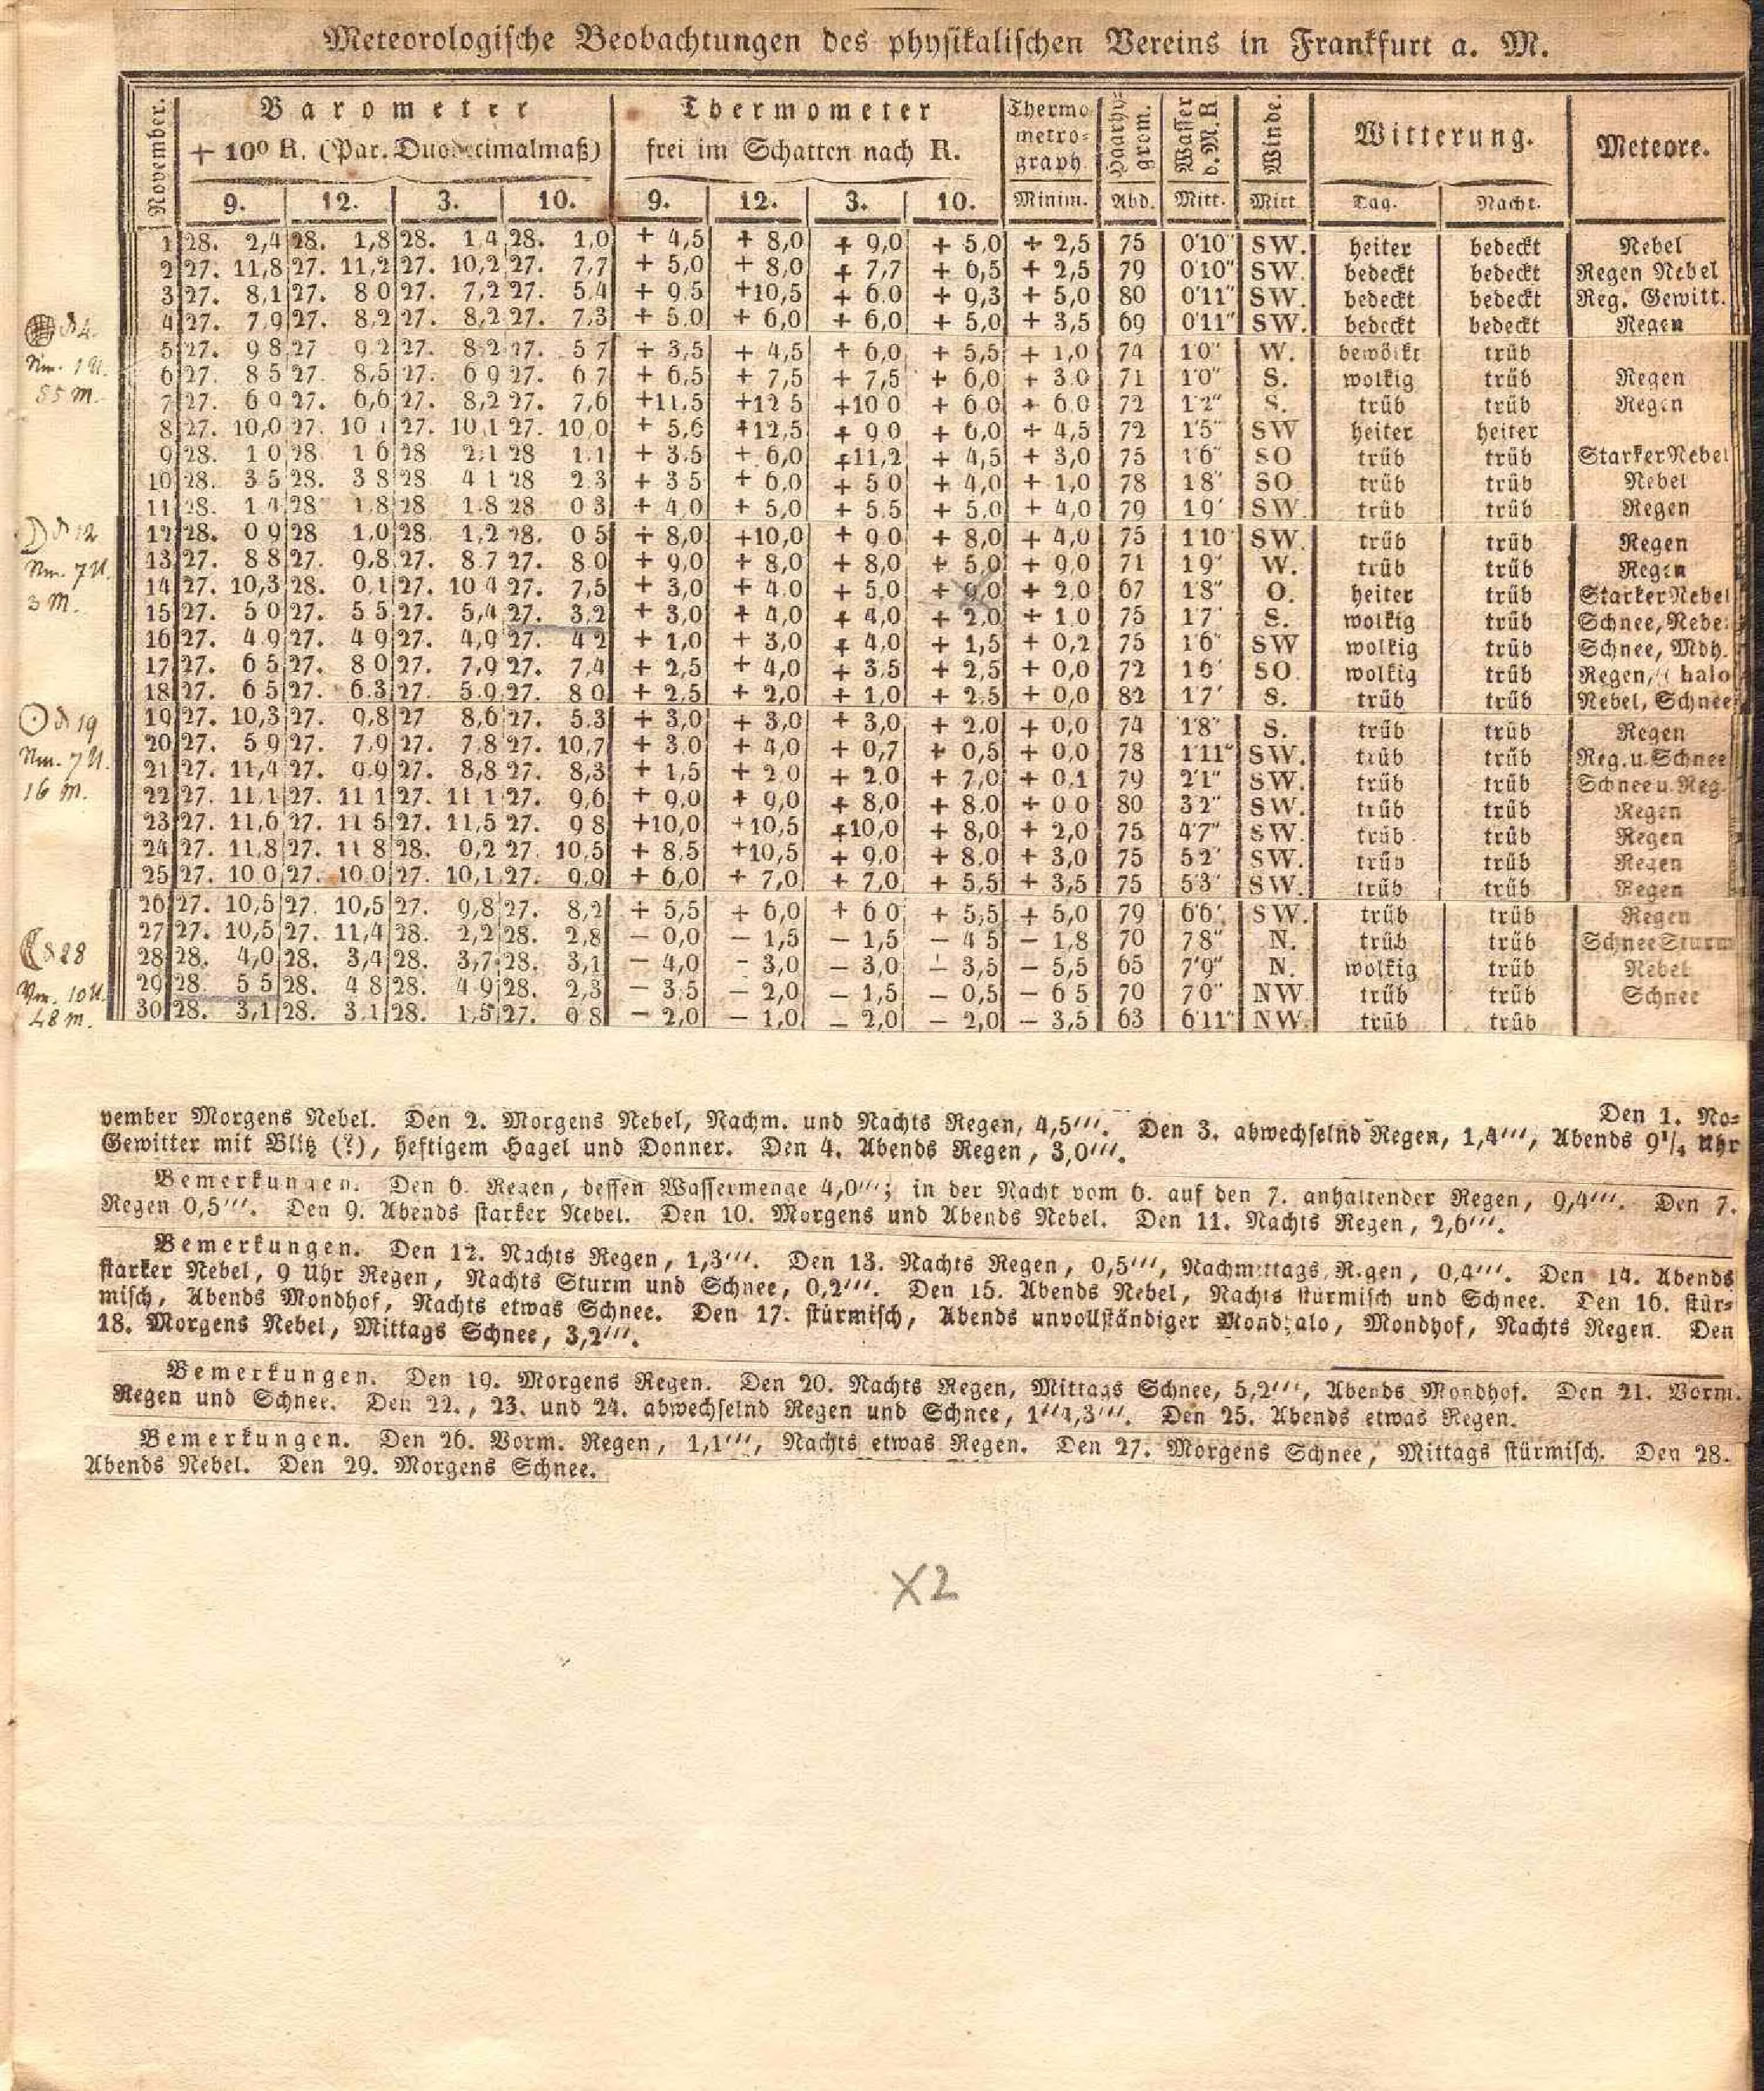 Meteorologische Beobachtungen des physikalischen Vereins in Frankfurt a. M.
November. Barometer Thermometer Thermo metro= graph Haarhy= grom. Wasser d. M. R Winde. Witterung. Meteore.
+ 10⁰ R. (Par. Duodecimalmaß) frei im Schatten nach R.
9. 12. 3. 10. 9. 12. 3. 10. Minim. Abd. Mitt. Mitt Tag. Nacht.
1 28. 2,4 28. 1,8 28. 1 4 28. 1,0 + 4,5 + 8,0 + 9,0 + 5,0 + 2,5 75 0'10" SW. heiter bedeckt Nebel
2 27. 11,8 27. 11,2 27. 10,2 27. 7,7 + 5,0 + 8,0 + 7,7 + 6,5 + 2,5 79 0'10" SW. bedeckt bedeckt Regen Nebel
3 27. 8,1 27. 8 0 27. 7,2 27. 5,4 + 9 5 +10,5 + 6.0 + 9,3 + 5,0 80 0'11" SW. bedeckt bedeckt Reg. Gewitt.
4 27. 7,9 27. 8,2 27. 8,2 27. 7,3 + 5,0 + 6,0 + 6,0 + 5,0 + 3,5 69 0'11" SW. bedeckt bedeckt Regen
5 27. 9 8 27 9 2 27. 8 2 27. 5 7 + 3,5 + 4,5 + 6,0 + 5,5 + 1,0 74 1'0" W. bewölkt trüb
6 27. 8 5 27. 8,5 27. 6 9 27. 6 7 + 6,5 + 7,5 + 7,5 + 6,0 + 3 0 71 1'0" S. wolkig trüb Regen
7 27. 6 0 27. 6,6 27. 8,2 27. 7,6 +11,5 +12 5 +10 0 + 6 0 + 6 0 72 1'2" S. trüb trüb Regen
8 27. 10,0 27. 10 1 27. 10,1 27. 10,0 + 5,6 +12,5 + 9 0 + 6,0 + 4,5 72 1'5" SW heiter heiter
9 28. 1 0 28. 1 6 28 2,1 28 1,1 + 3,5 + 6,0 +11,2 + 4,5 + 3,0 75 1'6" SO trüb trüb Starker Nebel
10 28. 3 5 28. 3 8 28 4 1 28 2 3 + 3 5 + 6,0 + 5 0 + 4,0 + 1,0 78 1'8" SO trüb trüb Nebel
11 28. 1 4 28 1,8 28 1.8 28 0 3 + 4,0 + 5,0 + 5 5 + 5,0 + 4,0 79 1'9' SW trüb trüb Regen
12 28. 0 9 28 1,0 28. 1,2 28. 0 5 + 8,0 +10,0 + 9 0 + 8,0 + 4,0 75 1'10" SW. trüb trüb Regen
13 27. 8 8 27. 9,8 27. 8 7 27. 8 0 + 9,0 + 8,0 + 8,0 + 5,0 + 9,0 71 1'9" W. trüb trüb Regen
14 27. 10,3 28. 0,1 27. 10 4 27. 7,5 + 3,0 + 4,0 + 5,0 + 9,0 + 2,0 67 1'8" O. heiter trüb Starker Nebel
15 27. 5 0 27. 5 5 27. 5,4 27. 3,2 + 3,0 + 4,0 + 4,0 + 2,0 + 1 0 75 1'7' S. wolkig trüb Schnee, Nebe
16 27. 4 9 27. 4 9 27. 4,9 27. 4 2 + 1,0 + 3,0 + 4,0 + 1,5 + 0,2 75 1'6" SW wolkig trüb Schnee, Mdh.
17 27. 6 5 27. 8 0 27. 7,9 27. 7,4 + 2,5 + 4,0 + 3,5 + 2,5 + 0,0 72 1'6' SO. wolkig trüb Regen, ( halo
18 27. 6 5 27. 6.3 27. 5.9 27. 8 0 + 2,5 + 2,0 + 1,0 + 2,5 + 0,0 82 1'7' S. trüb trüb Nebel, Schnee
19 27. 10,3 27. 9,8 27 8,6 27. 5.3 + 3,0 + 3,0 + 3,0 + 2,0 + 0,0 74 1'8" S. trüb trüb Regen
20 27. 5 9 27. 7,9 27. 7,8 27. 10,7 + 3,0 + 4,0 + 0,7 + 0,5 + 0,0 78 1'11" SW. trüb trüb Reg. u. Schnee
21 27. 11,4 27. 9,9 27. 8,8 27. 8,3 + 1,5 + 2 0 + 2 0 + 7,0 + 0,1 79 2'1" SW. trüb trüb Schnee u. Reg.
22 27. 11,1 27. 11 1 27. 11 1 27. 9,6 + 9,0 + 9,0 + 8,0 + 8,0 + 0 0 80 3'2" SW. trüb trüb Regen
23 27. 11,6 27. 11 5 27. 11,5 27. 9 8 +10,0 +10,5 +10,0 + 8,0 + 2,0 75 4'7" SW. trüb trüb Regen
24 27. 11,8 27. 11 8 28. 0,2 27. 10,5 + 8,5 +10,5 + 9,0 + 8,0 + 3,0 75 5'2' SW. trüb trüb Regen
25 27. 10 0 27. 10 0 27. 10,1 27. 9,9 + 6,0 + 7,0 + 7,0 + 5,5 + 3,5 75 5'3' SW. trüb trüb Regen
26 27. 10,5 27. 10,5 27. 9,8 27. 8,2 + 5,5 + 6,0 + 6 0 + 5,5 + 5,0 79 6'6' SW. trüb trüb Regen
27 27. 10,5 27. 11,4 28. 2,2 28. 2,8 − 0,0 − 1,5 − 1,5 − 4 5 − 1,8 70 7'8" N. trüb trüb Schnee Sturm
28 28. 4,0 28. 3,4 28. 3,7 28. 3,1 − 4,0 − 3,0 − 3,0 − 3,5 − 5,5 65 7'9" N. wolkig trüb Nebel
29 28. 5 5 28. 4 8 28. 4 9 28. 2,3 − 3,5 − 2,0 − 1,5 − 0,5 − 6 5 70 7'0" NW trüb trüb Schnee
30 28. 3,1 28. 3,1 28. 1,5 27. 9 8 − 2,0 − 1,0 − 2,0 − 2,0 − 3,5 63 6'11" NW. trüb trüb
d 4.
Nm. 1 U.
55 m.
d 12
Nm. 7 U.
3 M.
d 19
Nm. 7 U.
16 m.
d 28
Vm. 10 U.
48 m.
Den 1. No=
vember Morgens Nebel. Den 2. Morgens Nebel, Nachm. und Nachts Regen, 4,5'''. Den 3. abwechselnd Regen, 1,4''', Abends 9¼ Uhr
Gewitter mit Blitz (?), heftigem Hagel und Donner. Den 4. Abends Regen, 3,0'''.
Bemerkungen. Den 6. Regen, dessen Wassermenge 4,0'''; in der Nacht vom 6. auf den 7. anhaltender Regen, 9,4'''. Den 7.
Regen 0,5'''. Den 9. Abends starker Nebel. Den 10. Morgens und Abends Nebel. Den 11. Nachts Regen, 2,6'''.
Bemerkungen. Den 12. Nachts Regen, 1,3'''. Den 13. Nachts Regen, 0,5''', Nachmittags Regen, 0,4'''. Den 14. Abends
starker Nebel, 9 Uhr Regen, Nachts Sturm und Schnee, 0,2'''. Den 15. Abends Nebel, Nachts stürmisch und Schnee. Den 16. stür=
misch, Abends Mondhof, Nachts etwas Schnee. Den 17. stürmisch, Abends unvollständiger Mondhalo, Mondhof, Nachts Regen. Den
18. Morgens Nebel, Mittags Schnee, 3,2'''.
Bemerkungen. Den 19. Morgens Regen. Den 20. Nachts Regen, Mittags Schnee, 5,2''', Abends Mondhof. Den 21. Vorm.
Regen und Schnee. Den 22., 23. und 24. abwechselnd Regen und Schnee, 1''4,3'''. Den 25. Abends etwas Regen.
Bemerkungen. Den 26. Vorm. Regen, 1,1''', Nachts etwas Regen. Den 27. Morgens Schnee, Mittags stürmisch. Den 28.
Abends Nebel. Den 29. Morgens Schnee.
X2